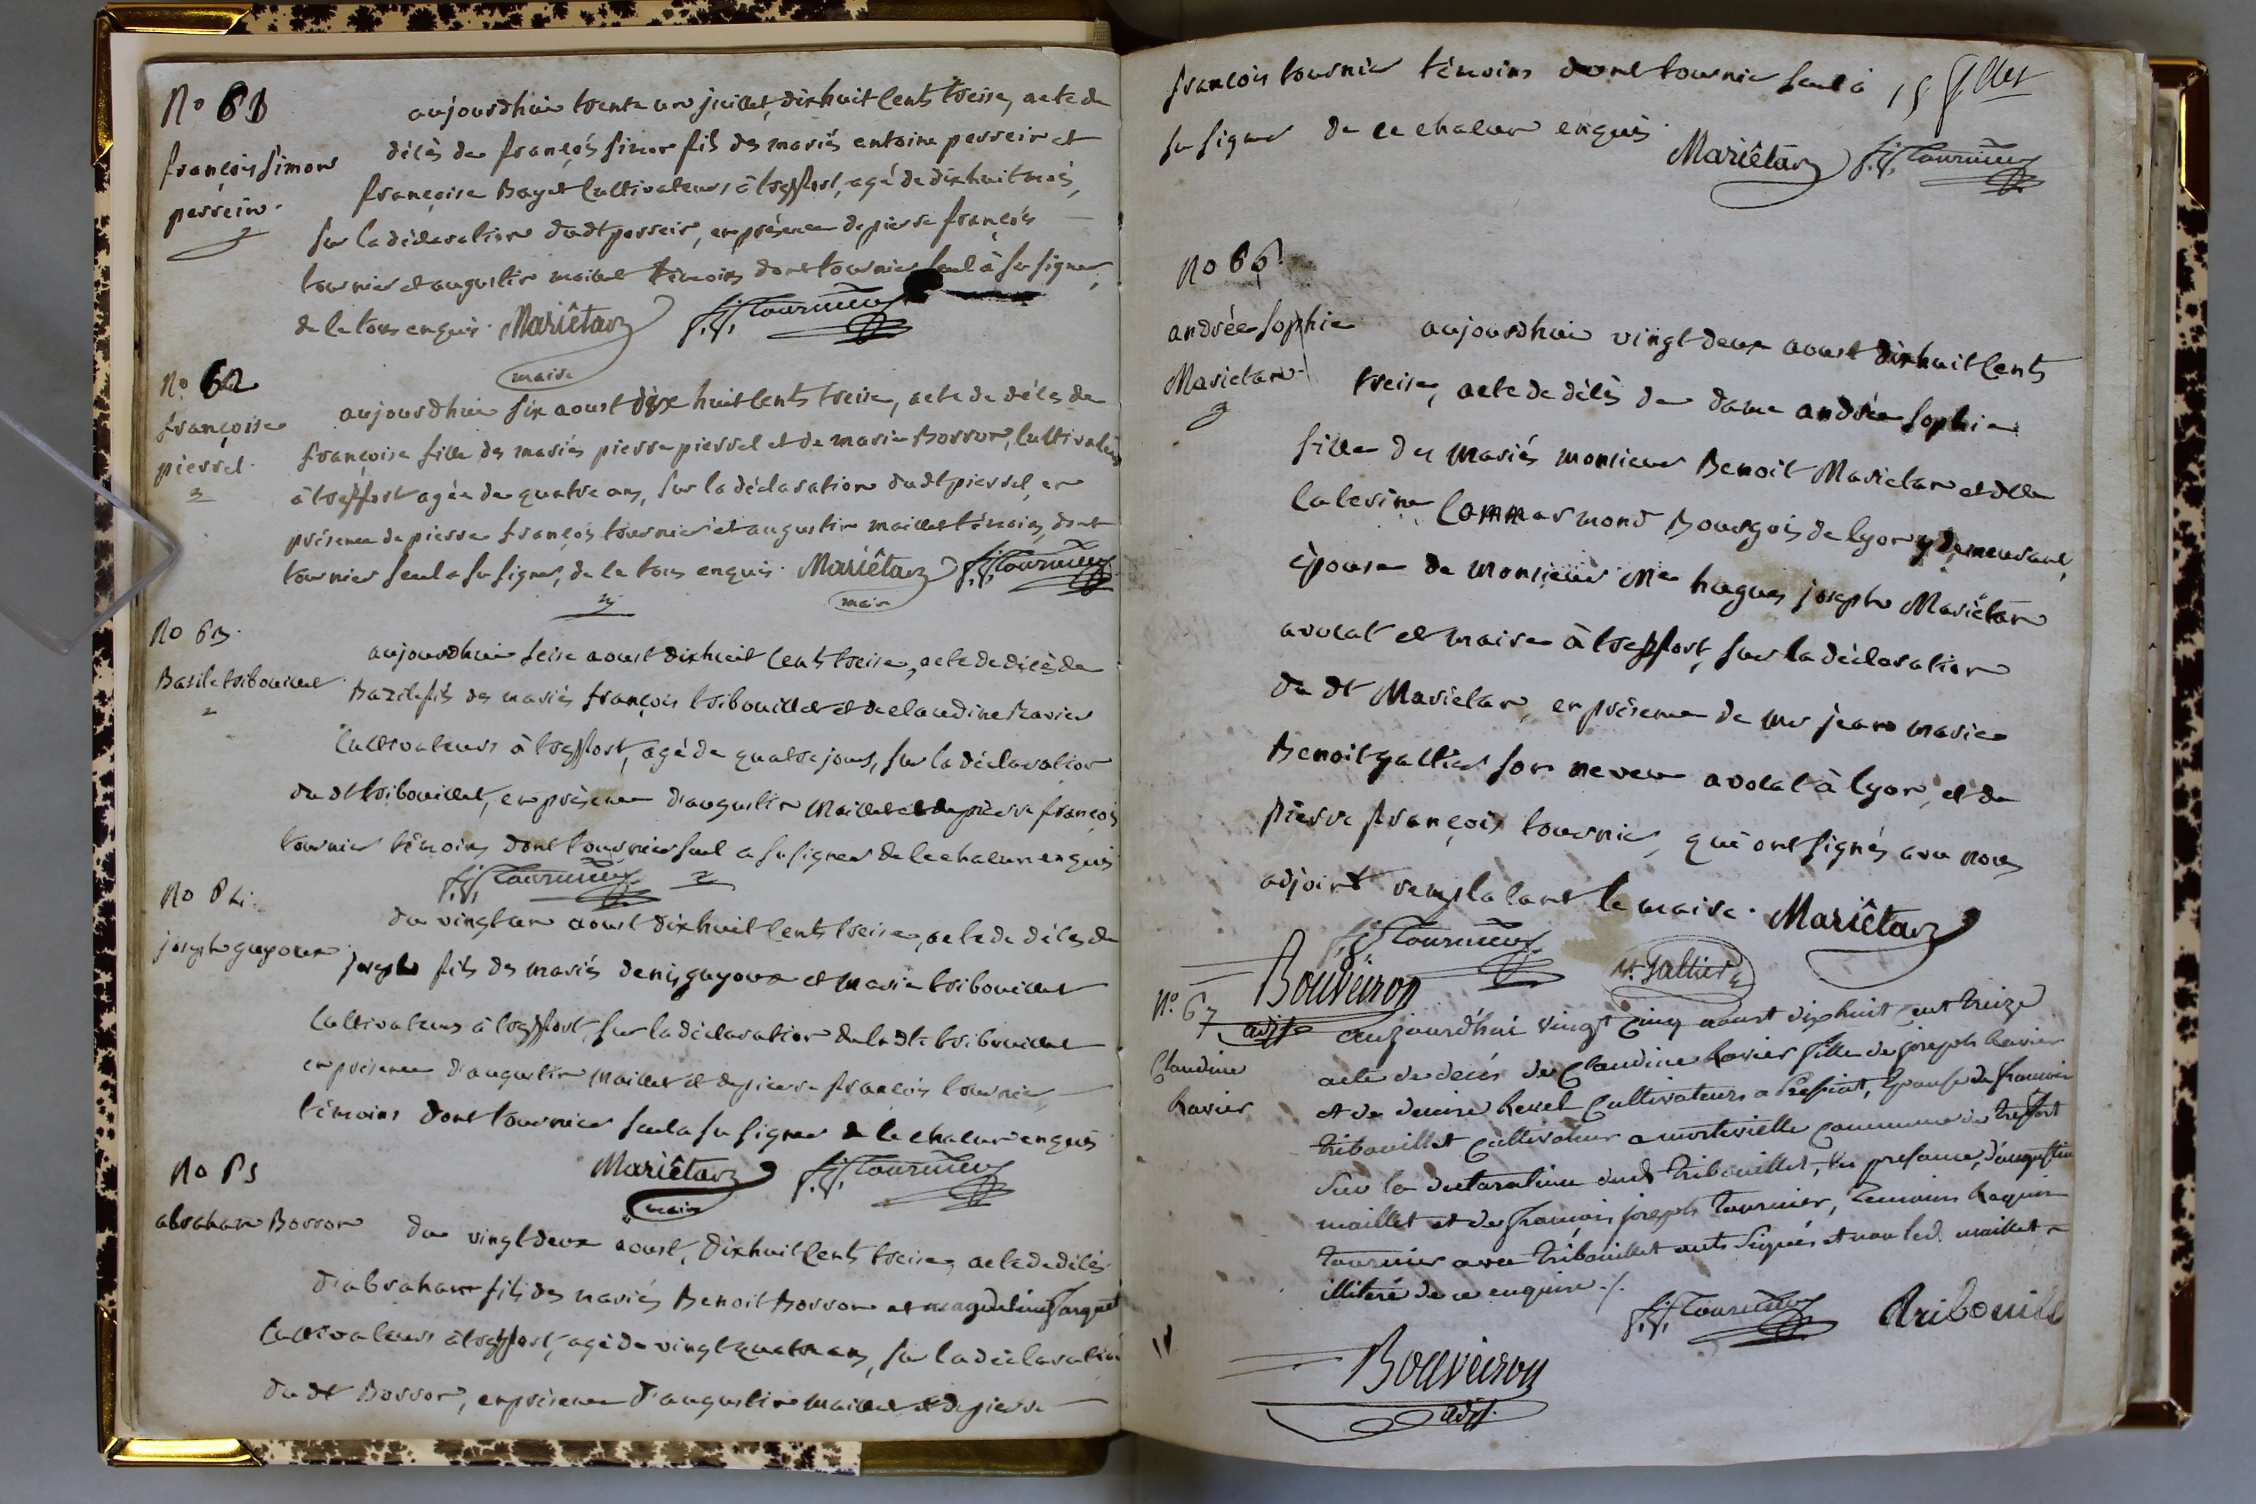 No 61
françois simon
perrein.
aujourdhui trente un juillet, dixhuit cents treise, acte de
décès de françois simon fils des mariés entoine perrein et
françoise Bayet Cultivateurs à treffort, agé de dixhuit mois,
sur la déclaration dudt perrein, en présence de pierre françois
tournier et augustin maillet témoins dont tournier seul à su signer,
de ce tous enquis. Mariêtan f.f. Tournier
maire
No 62
françoise
pierrel.
aujourdhui six aoust dix huit cents treise, acte de décès de
françoise fille des mariés pierre pierrel et de marie Borron, Cultivateurs
à treffort agée de quatre ans, sur la déclaration dudt pierrel, en
présence de pierre françois tournier et augustin maillet témoins, dont
tournier seul a su signer, de ce tous enquis. Mariêtan f.f. Tournier
maire
No 63.
Basile tribouillet
aujourdhui seise aoust dixhuit cents treise, acte de décès de
Bazile fils des mariés françois tribouillet et de claudine Ravier
Cultivateurs à treffort, agé de quatre jours, sur la déclaration
du dt tribouillet, en présence d'augustin Maillet et de pierre françois
tournier témoins dont tournier seul a su signer de ce chacun enquis
f.f. Tournier
No 64.
joseph guyoux
du vingt un aoust dixhuit cents treise, acte de décès de
joseph fils des mariés denis guyoux et marie tribouillet
Cultivateurs à treffort, sur la déclaration de la dte tribouillet
en présence d'augustin Maillet et de pierre françois tournier
témoins dont tournier seul a su signer de ce chacun enquis
Mariêtan f.f. Tournier
maire
No 65
abraham Borron
du vingt deux aoust, dixhuit cents treise, acte de décès
d'abraham fils des mariés Benoit Borron et magdeleine
Cultivateurs à treffort, agé de vingt quatre ans, sur la déclaration
du dt Borron, en présence d'augustin maillet et de pierre
françois tournier témoins dont tournier seul à
su signer de ce chacun enquis.
Mariêtan f.f. Tournier
No 66.
andrée sophie
Marietan.
aujourdhui vingt deux aoust dixhuit cents
treise, acte de décès de dame andrée sophie
fille des mariés monsieur Benoit Marietan et dlle
Caterine Commarmond Bourgois de lyon y demeurant,
épouse de monsieur Me hugues joseph Mariêtan
avocat et maire à treffort, sur la déclaration
du dt Marietan, en présence de mr jean marie
Benoit galtier son neveu avocat à lyon, et de
pierre françois tournier, qui ont signés avec nous
adjoint remplacant le maire. Mariêtan
f.f. Tournier
Galtier
Bouveiron
adjt
No. 67
Claudine
Ravier
aujourd'hui vingt cinq aoust dix huit cent treize
acte de décès de Claudine Ravier fille de joseph Ravier
et de denise Revel Cultivateurs a , Epouse de françois
tribouillet Cultivateur a commune de treffort
sur la declaration dud tribouillet, en presance, d'augustin
maillet et de françois joseph tournier, temoins Requis
tournier avec tribouillet onts signés et non led. maillet
illiteré de ce enquire ./.
f.f. Tournier Tribouill
Bouveiron
adjt.